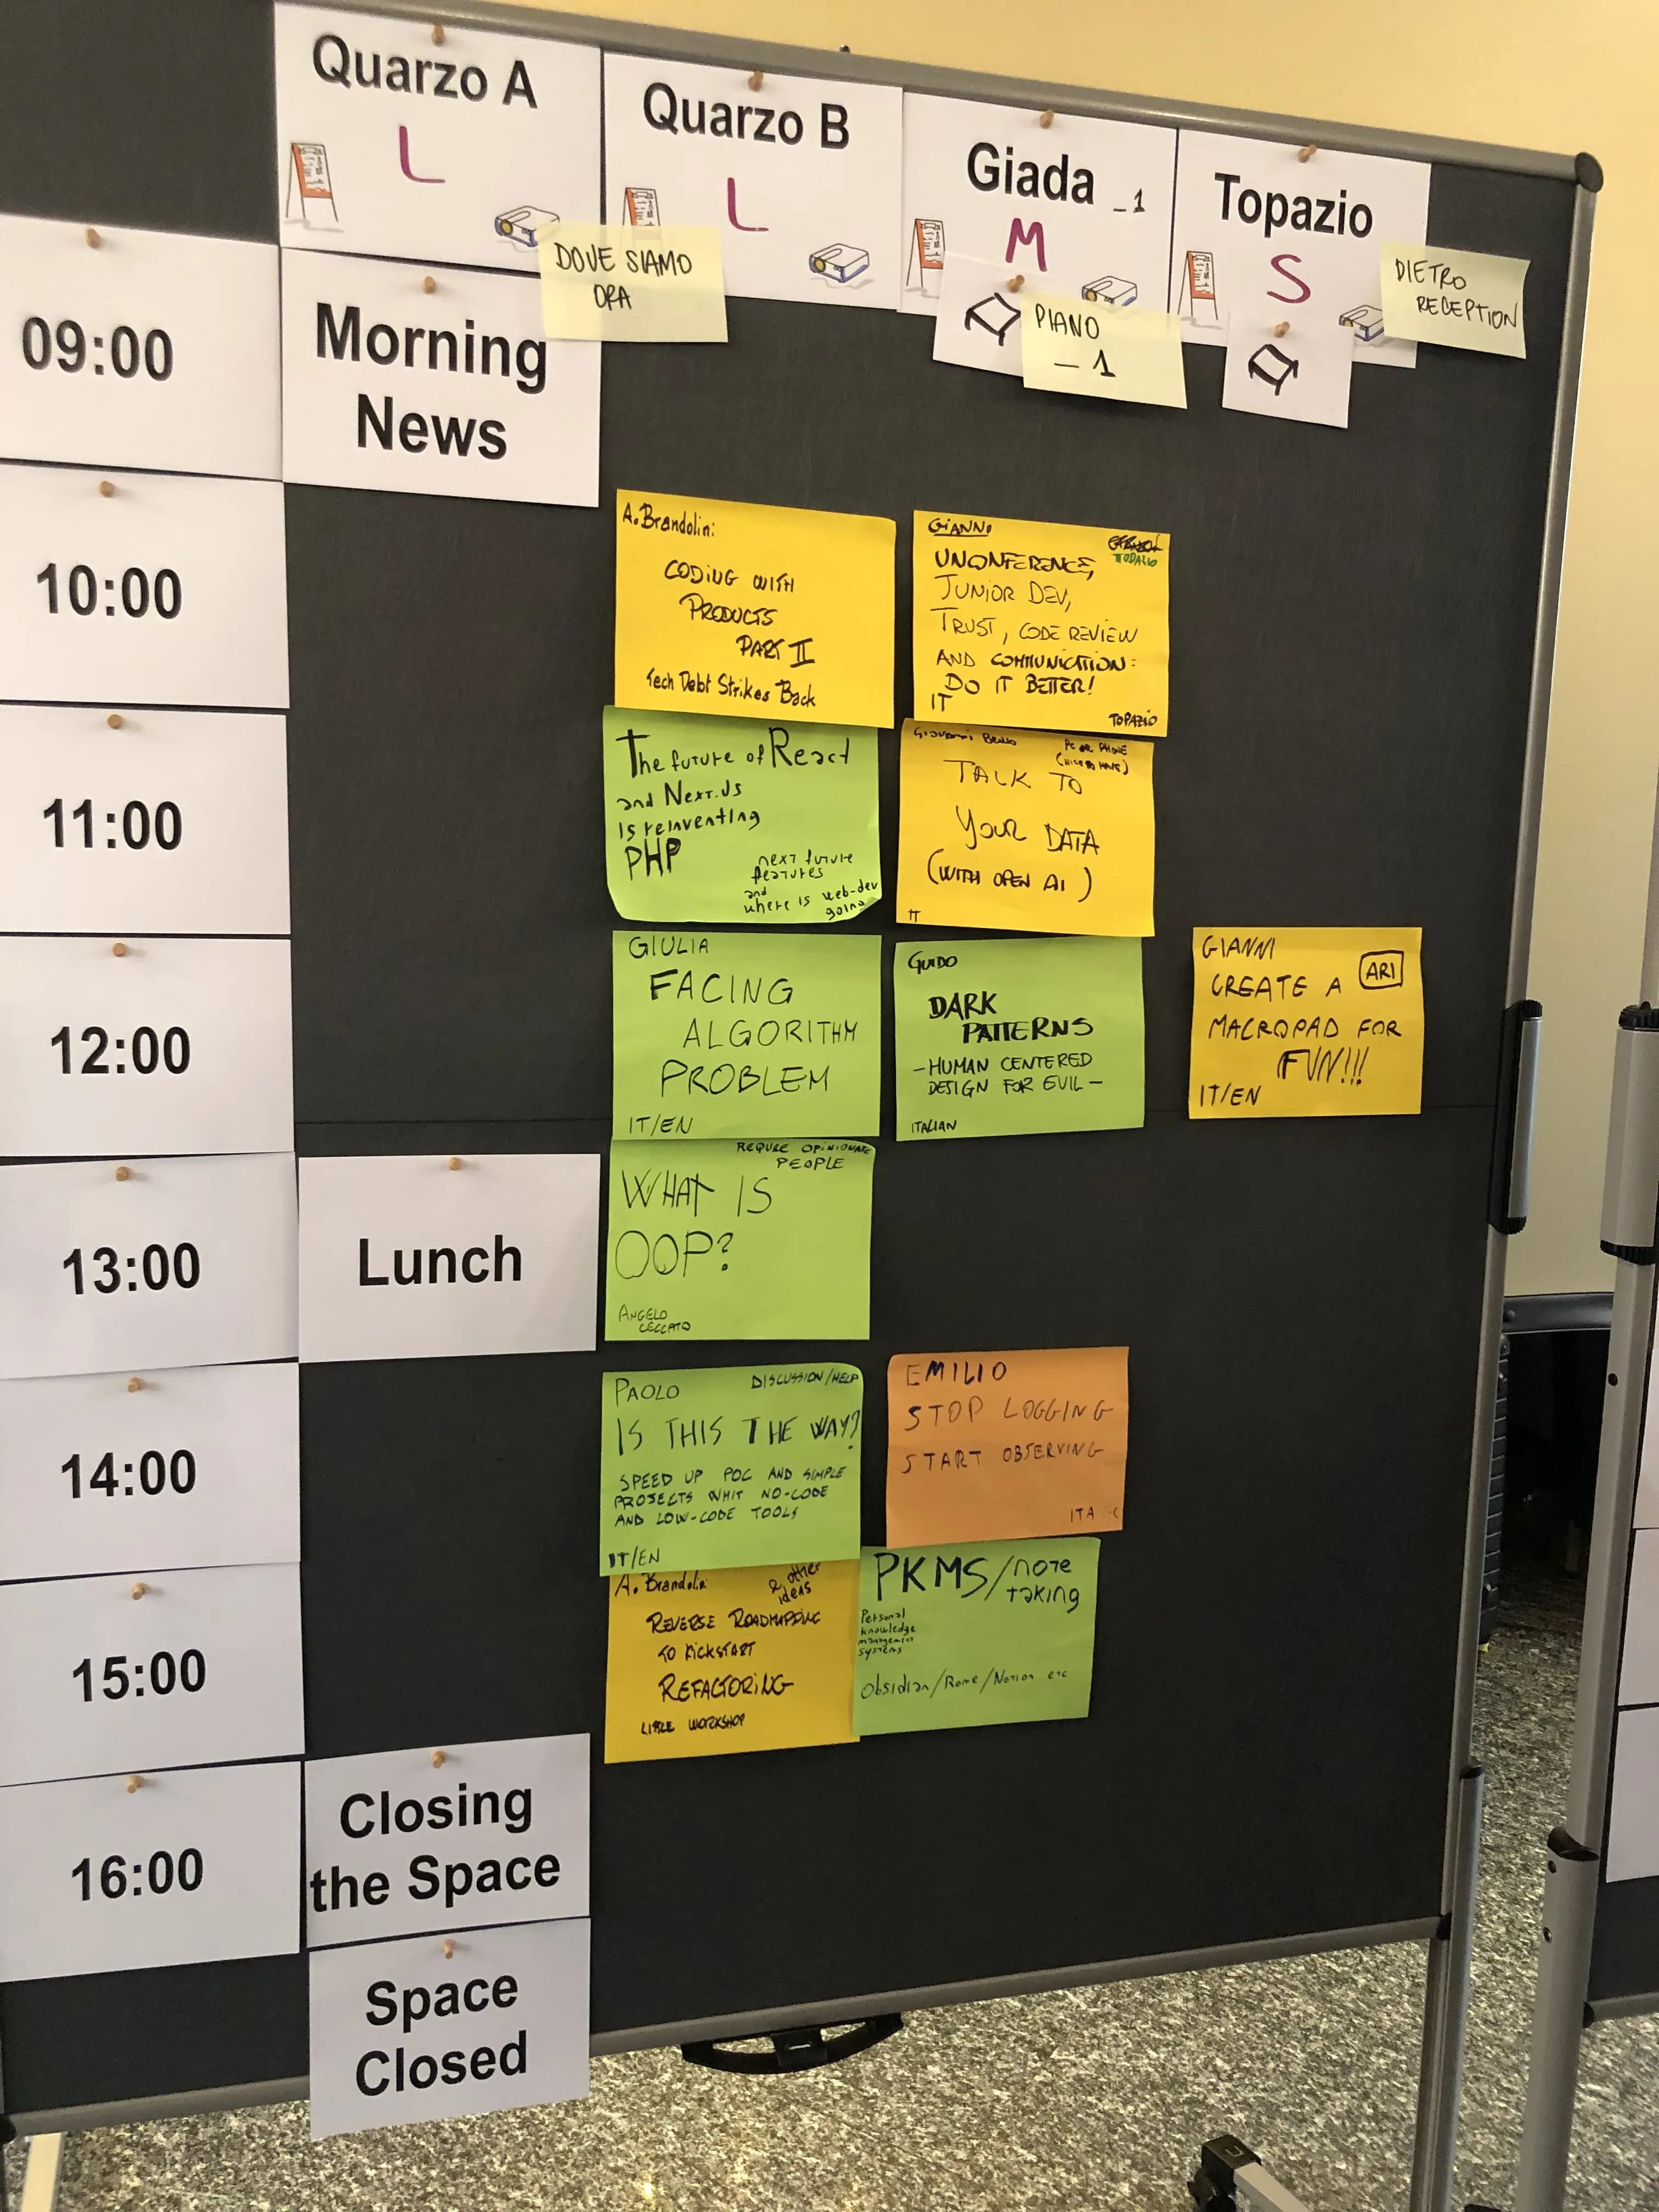 Quarzo A
L
Quarzo B
L
Giada _1
M
Topazio
S
DOVE SIAMO
ORA
PIANO
-1
DIETRO
RECEPTION
09:00
Morning
News
10:00
A. Brandolini:
CODING WITH
PRODUCTS
PART II
Tech Debt Strikes Back
GIANNI
TOPAZIO
UNCONFERENCE,
JUNIOR DEV,
TRUST, CODE REVIEW
AND COMMUNICATION:
DO IT BETTER!
IT
TOPAZIO
11:00
The future of React
and Next.Js
is reinventing
PHP
next future
features
and
where is web-dev
going
Giovanni
PC OR PHONE
(NICE TO HAVE)
TALK TO
YOUR DATA
(WITH OPEN AI)
IT
12:00
GIULIA
FACING
ALGORITHM
PROBLEM
IT/EN
GUIDO
DARK
PATTERNS
-HUMAN CENTERED
DESIGN FOR EVIL-
ITALIAN
GIANNI
ARI
CREATE A
MACROPAD FOR
FUN!!!
IT/EN
13:00
Lunch
REQUIRE OPINIONATE
PEOPLE
WHAT IS
OOP?
ANGELO
CECCATO
14:00
PAOLO
DISCUSSION/HELP
IS THIS THE WAY?
SPEED UP POC AND SIMPLE
PROJECTS WHIT NO-CODE
AND LOW-CODE TOOLS
IT/EN
EMILIO
STOP LOGGING
START OBSERVING
ITA
15:00
A. Brandolini
& other
ideas
REVERSE ROADMAPPING
TO KICKSTART
REFACTORING
LITTLE WORKSHOP
PKMS/note
taking
Personal
knowledge
management
systems
Obsidian/Rome/Notion etc
16:00
Closing
the Space
Space
Closed